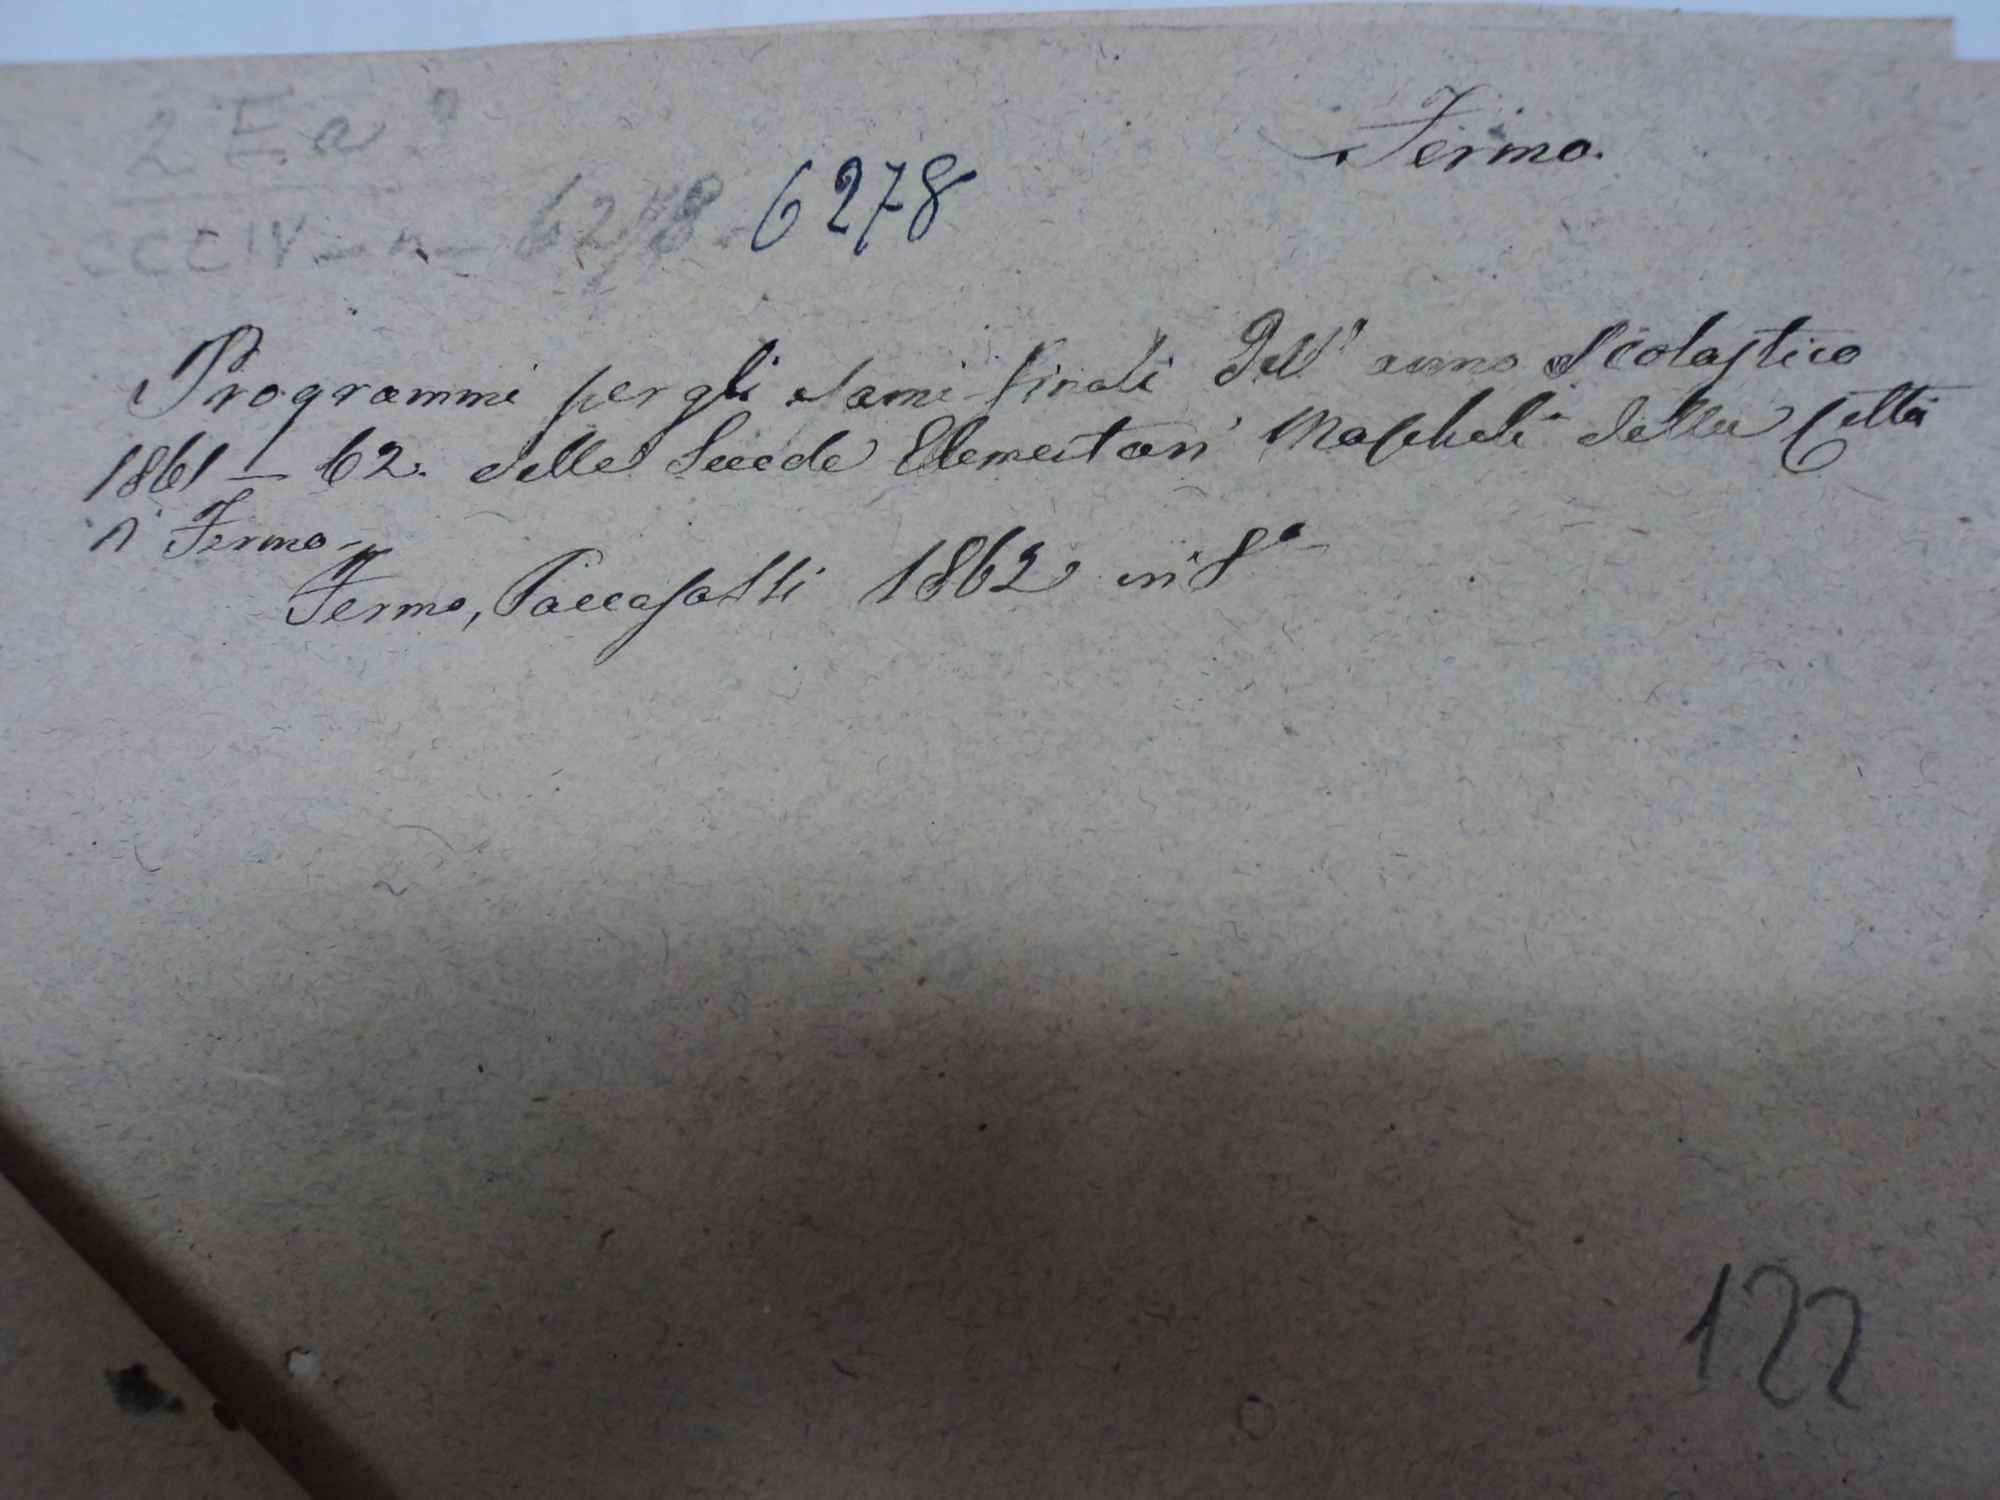 Fermo.
2 E a
CCCIV - n - 6278. 6278
Programmi per gli esami finali Dell' anno Scolastico
1861 - 62. delle Scuole Elementari Maschili della Città
di Fermo -
Fermo, Paccasassi 1862 in 8°
122